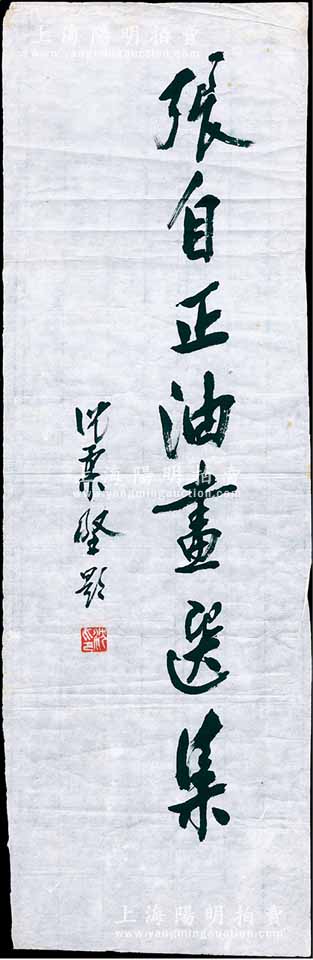 張自正油畫選集
沈柔堅題
上海陽明拍賣
上海陽明拍賣
www.yangmingauction.com
上海陽明拍賣
www.yangmingauction.com